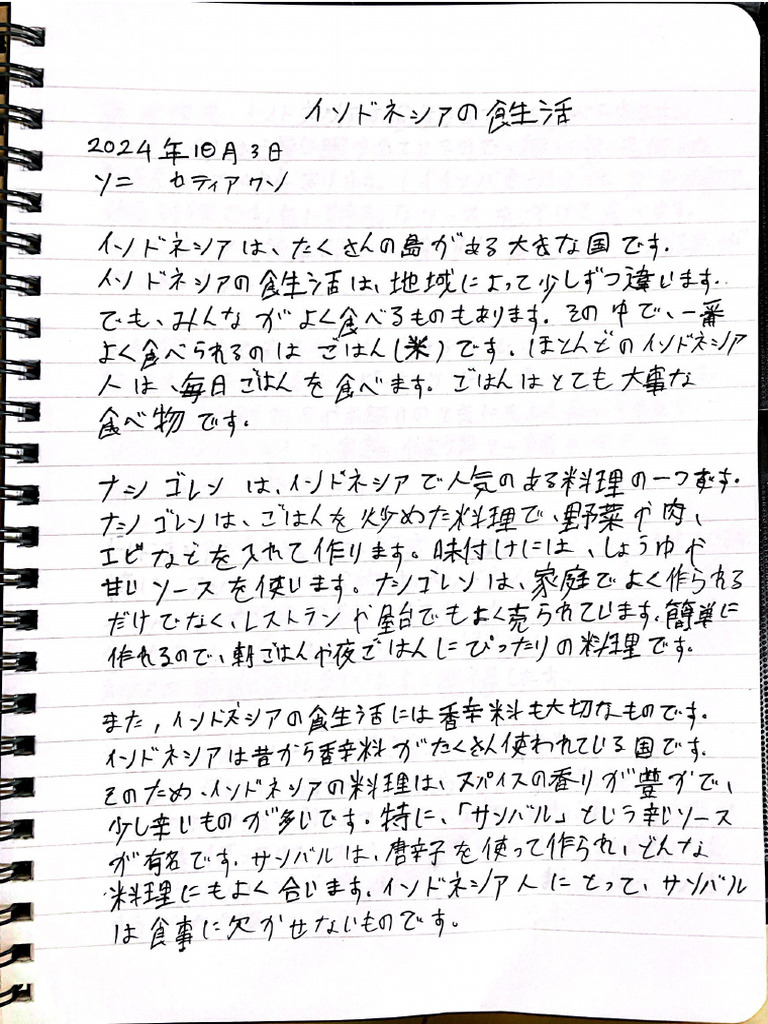 インドネシアの食生活
2024年10月3日
ソニ セティアワン
インドネシアは、たくさんの島がある大きな国です。
インドネシアの食生活は、地域によって少しずつ違います。
でも、みんながよく食べるものもあります。その中で、一番
よく食べられるのはごはん(米)です。ほとんどのインドネシア
人は、毎日ごはんを食べます。ごはんはとても大事な
食べ物です。
ナシゴレンは、インドネシアで人気のある料理の一つです。
ナシゴレンは、ごはんを炒めた料理で、野菜や肉、
エビなどを入れて作ります。味付けには、しょうゆや
甘いソースを使います。ナシゴレンは、家庭でよく作られる
だけでなく、レストランや屋台でもよく売られています。簡単に
作れるので、朝ごはんや夜ごはんにぴったりの料理です。
また、インドネシアの食生活には香辛料も大切なものです。
インドネシアは昔から香辛料がたくさん使われている国です。
そのため、インドネシアの料理は、スパイスの香りが豊かで、
少し辛いものが多いです。特に、「サンバル」という辛いソース
が有名です。サンバルは、唐辛子を使って作られ、どんな
料理にもよく合います。インドネシア人にとって、サンバル
は食事に欠かせないものです。